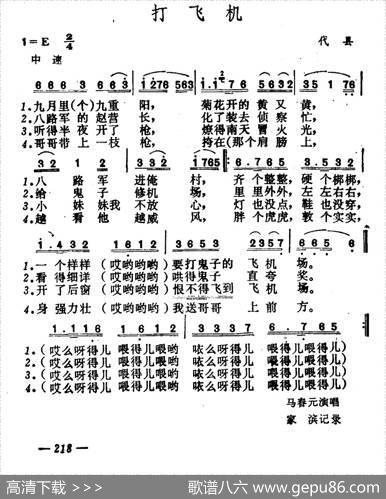 打飞机
1=E 2/4 代县
中速
6 6 6 3 6 6 3 1276 563 1.1 7 6 5632 35 1 76
1.九月里(个)九重 阳, 菊花开的黄又黄,
2.八路军的赵营 长, 化了装去侦察忙,
3.听得半夜开了 枪, 燎得南天冒火光,
4.哥哥带上一枝 枪, 挎在(那个肩膀上,
332 12 332 1 1765. 6 3 3 2 3 3 2
1.八路军进俺村, 齐个整整,硬个梆梆,
2.给鬼子修机场, 里里外外,左左右右,
3.小妹妹我不放心, 灯也没点,鞋也没穿,
4.越看他越威风, 胖个虎虎,敦个实实,
1.432 6 1 1 2 3653 2357 665 6
1.一个样样(哎哟哟哟)要打鬼子的飞机场。
2.看得细详(哎哟哟哟)哄得鬼子直夸奖。
3.开了后窗(哎哟哟哟)恨不得飞到飞机场。
4.身强力壮(哎哟哟哟)我送哥哥上前方。
1.116 1612 3337 6.765
1.(哎么呀得儿 喂得儿喂哟 依么呀得儿 喂得儿)
2.(哎么呀得儿 喂得儿喂哟 依么呀得儿 喂得儿)
3.(哎么呀得儿 喂得儿喂哟 依么呀得儿 喂得儿)
4.(哎么呀得儿 喂得儿喂哟 依么呀得儿 喂得儿)
马春元演唱
家 滨记录
— 218 —
高清下载 >>>> 歌谱八六 www.gepu86.com